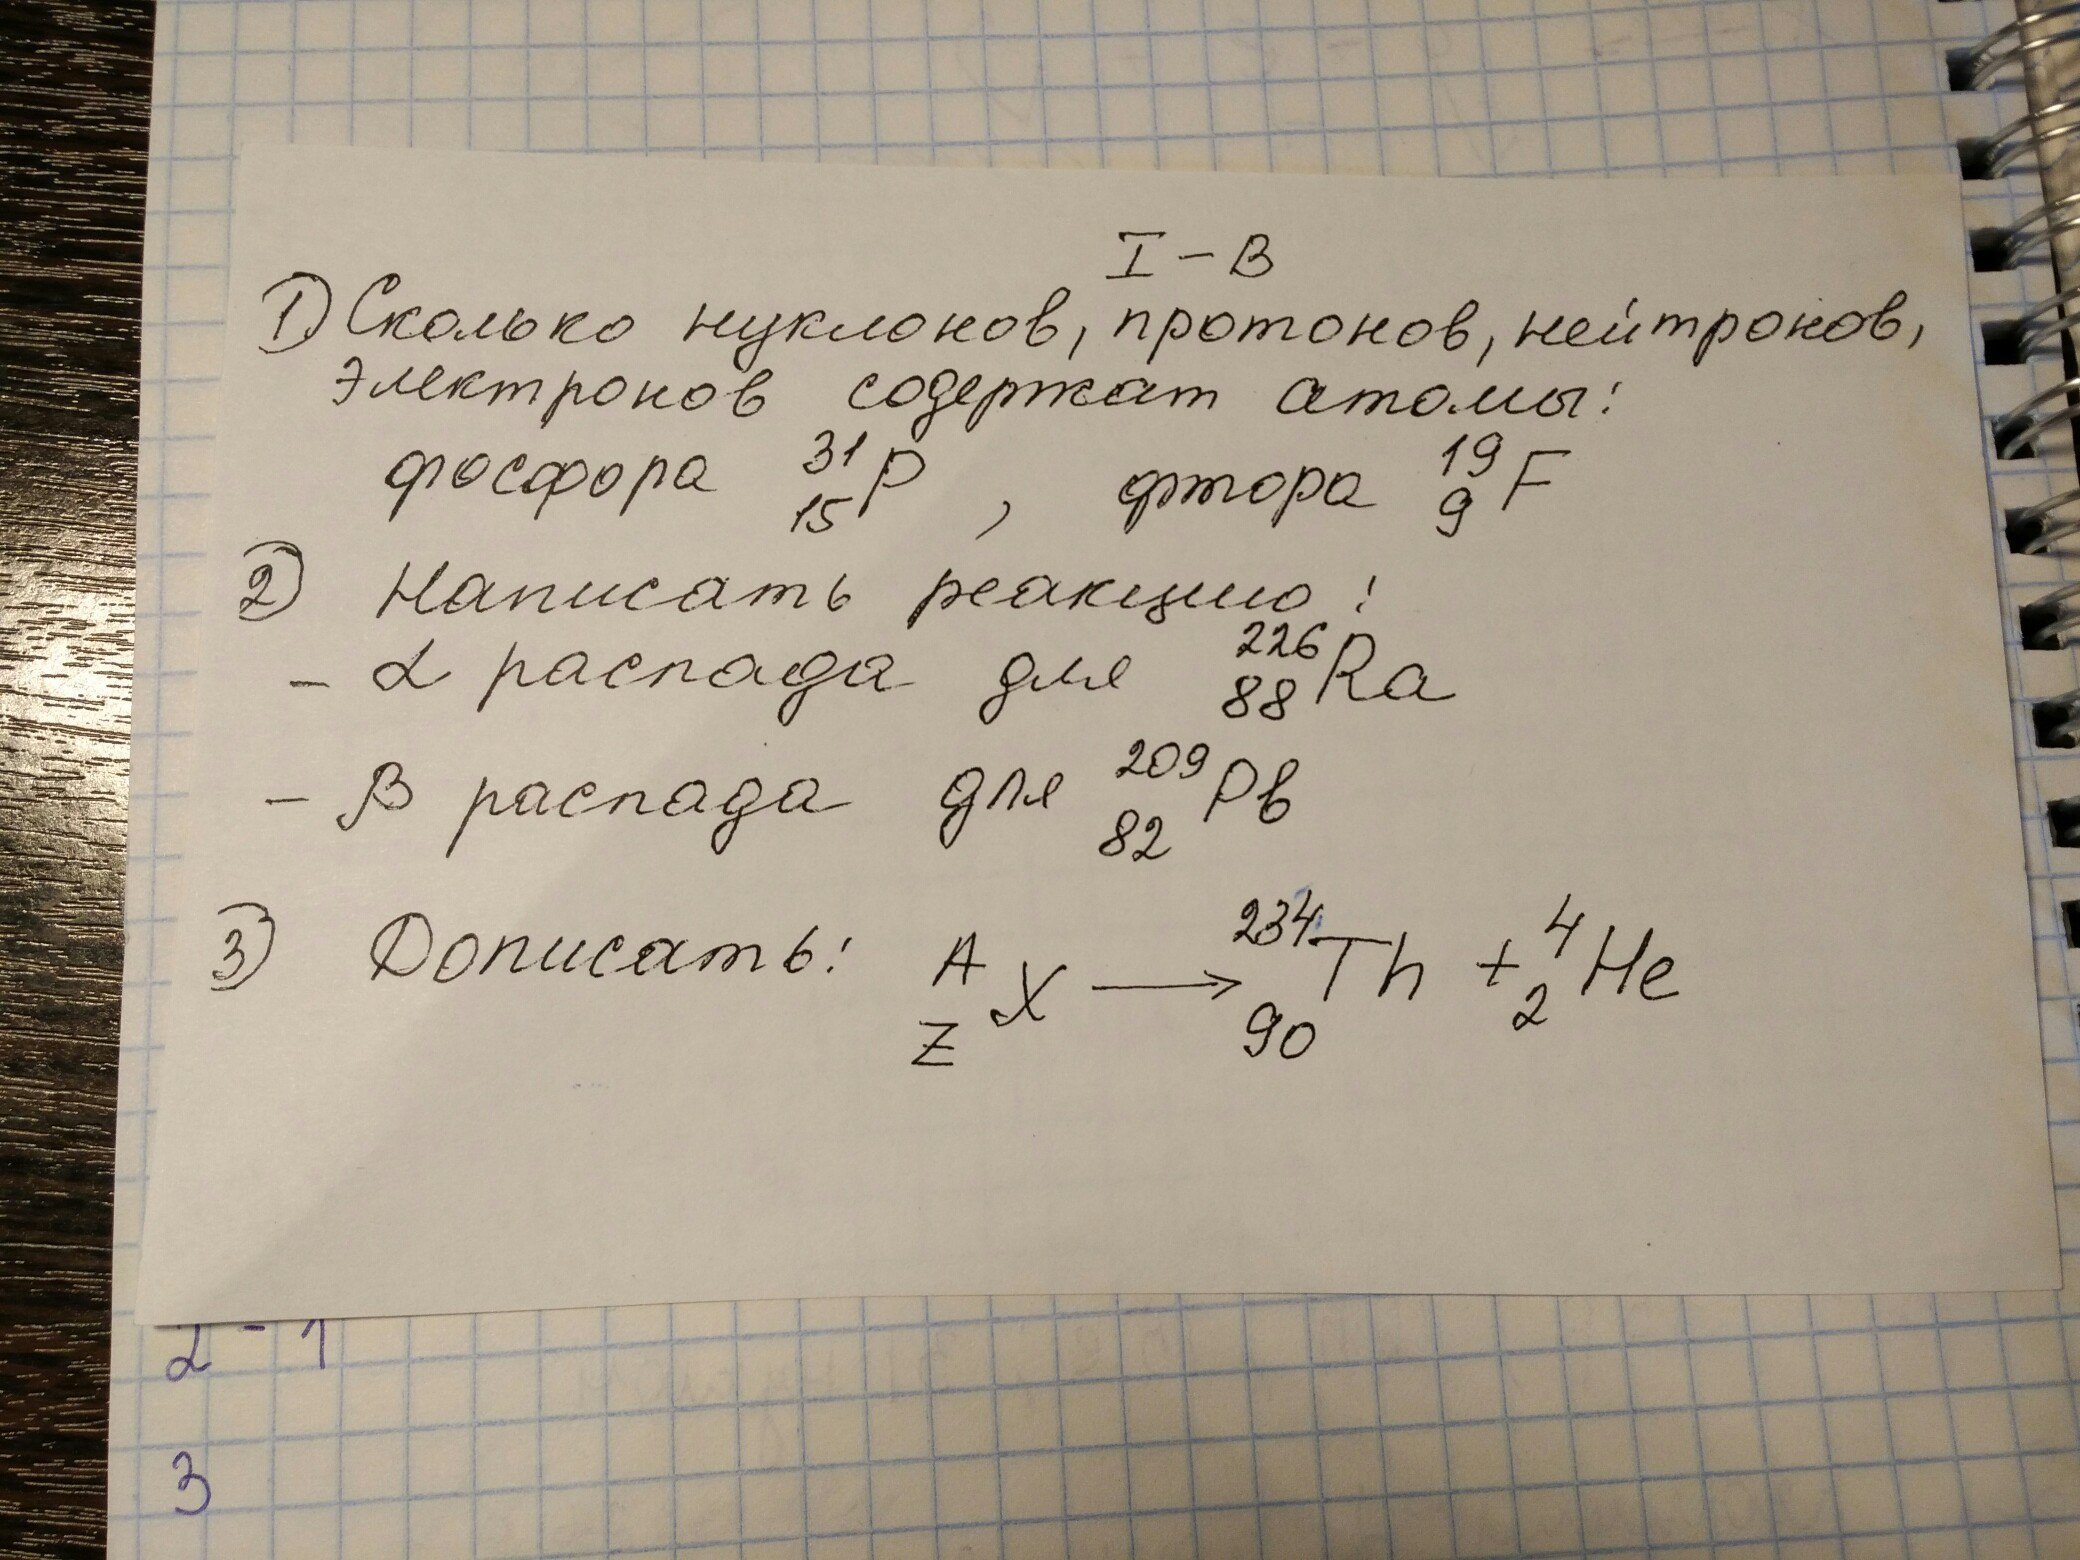 I - В
1) Сколько нуклонов, протонов, нейтронов,
электронов содержат атомы:
фосфора ³¹₁₅P , фтора ¹⁹₉F
2) Написать реакцию:
- α распада для ²²⁶₈₈Ra
- β распада для ²⁰⁹₈₂Pb
3) Дописать: ᴬ_Z X → ²³⁴₉₀Th + ⁴₂He
2 - 1
3